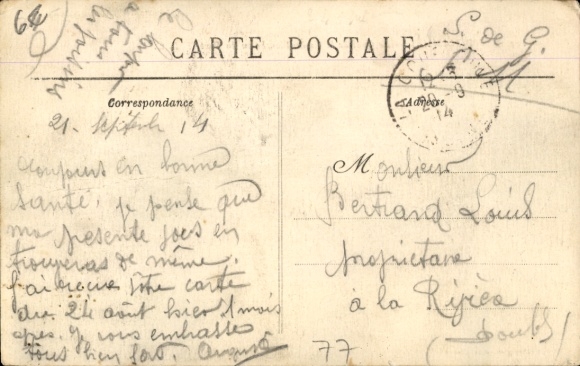 CARTE POSTALE
Correspondance
Adresse
S. de G.
M
20 -9
14
21 Septembre 14
Toujours en bonne
santé. je pense que
ma présente vous en
trouveras de même.
J'ai reçue votre carte
du 24 août hier 1 mois
après. Je vous embrasse
tous bien fort. Auguste
Monsieur
Bertrand Louis
propriétaire
à la
(Doubs)
77